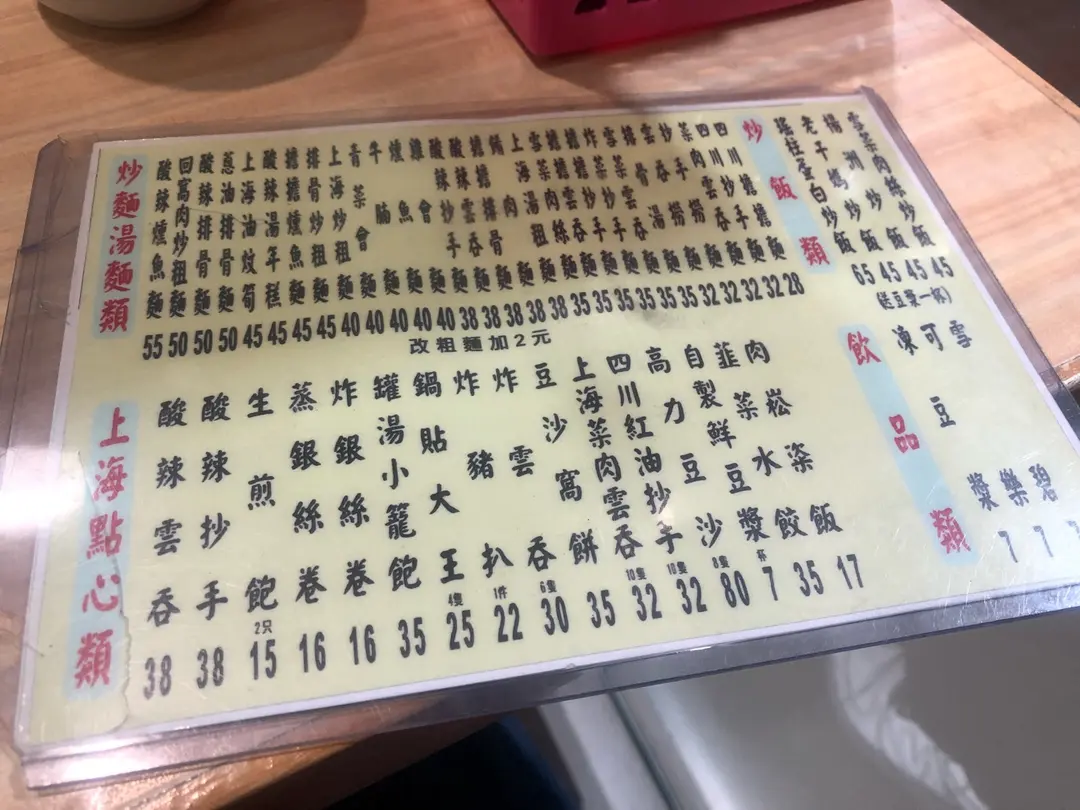 炒麵湯麵類
酸辣燻魚麵 55
回窩肉炒粗麵 50
酸辣排骨麵 50
蔥油排骨麵 50
上海油炆筍 45
酸辣湯年糕 45
擔擔燻魚麵 45
排骨炒粗麵 45
上海炒粗麵 40
青菜會麵 40
牛腩麵 40
燻魚麵 40
雞會麵 40
酸辣抄手麵 38
酸辣雲吞麵 38
擔擔排骨麵 38
肉麵 38
上海湯粗麵 38
雪菜肉絲麵 35
麵 35
麵 35
麵 35
麵 35
麵 35
麵 32
麵 32
麵 32
麵 32
麵 28
改粗麵加2元
炒飯類
瑤柱蛋白炒飯 65
老干媽炒飯 45
楊洲炒飯 45
雪菜肉絲炒飯 45
(送豆漿一杯)
上海點心類
酸辣雲吞 38
酸辣抄手 38
生煎飽 2只 15
蒸銀絲卷 16
炸銀絲卷 16
罐湯小籠飽 35
鍋貼大王 4隻 25
炸豬扒 1件 22
炸雲吞 6隻 30
豆沙窩餅 35
上海菜肉雲吞 10隻 32
四川紅油抄手 10隻 32
高力豆沙 8隻 80
自製鮮豆漿 杯 7
韮菜水餃 35
肉崧粢飯 17
飲品類
凍豆漿 7
可樂 7
雪碧